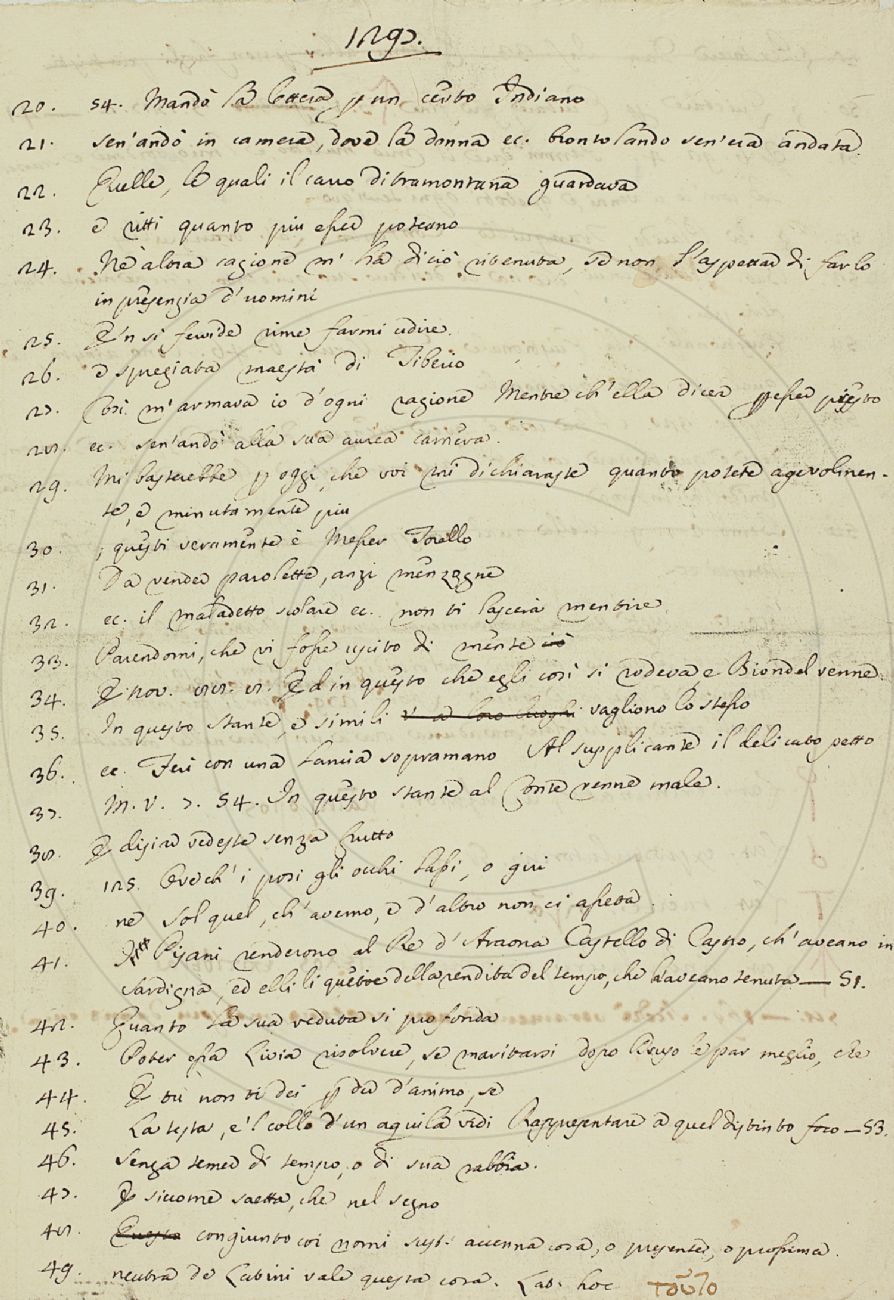 1297.
20. 54. Mandò la lettera p un certo Indiano
21. sen'andò in camera, dove la donna ec. brontolando sen'era andata.
22. Quelle, le quali il carro di tramontana guardava
23. e ritti quanto piu esser poteano
24. Ne altra cagione m' ha di ciò ritenuta, se non l'aspettar di farlo
in presenzia d'uomini
25. E'n si fervide rime farmi udire.
26. e spregiata maestà di Tiberio
27. Così m'armava io d'ogni ragione Mentre ch'ella dicea p esser presto
28. ec. sen'andò alla sua aurea camera.
29. Mi basterebbe p oggi, che voi mi dichiaraste quanto potete agevolmen-
te, e minutamente piu
30. ; questi veramente è Messer Torello
31. Da vender parolette, anzi menzogne
32. ec. il maladetto scolare ec. non ti lascerà mentire
33. Parendomi, che vi fosse uscito di mente
34. E nov. 88. 8. Ed in questo che egli così si rodeva, e Biondel venne.
35. In questo stante, e simili vagliono lo stesso
36. ec. Ferì con una lancia sopramano Al supplicante il delicato petto
37. M. V. 7. 54. In questo stante al Conte venne male.
38. E disiar vedeste senza frutto
39. 125. Ove ch'i posi gli occhi lassi, o giri
40. ne sol quel, ch'avemo, e d'altro non ci asseta.
41. Pisani renderono al Re d'Araona Castello di Castro, ch'aveano in
Sardigna, ed elli li quetoe della rendita del tempo, che l'aveano tenuta — 51.
42. Quanto la sua veduta si profonda
43. Poter ossia Livia risolvere, se maritarsi dopo Druso le par meglio, che
44. E tu non ti dei p der d'animo, se
45. La testa, e'l collo d'un aquila vidi Rappresentare a quel distinto foco — 53.
46. Senza temer di tempo, o di sua rabbia.
47. E siccome saetta, che nel segno
48. Questo congiunto coi nomi sust: accenna cosa, o presente, o prossima.
49. neutra de Latini vale questa cosa. Lat. hoc τοῦτο